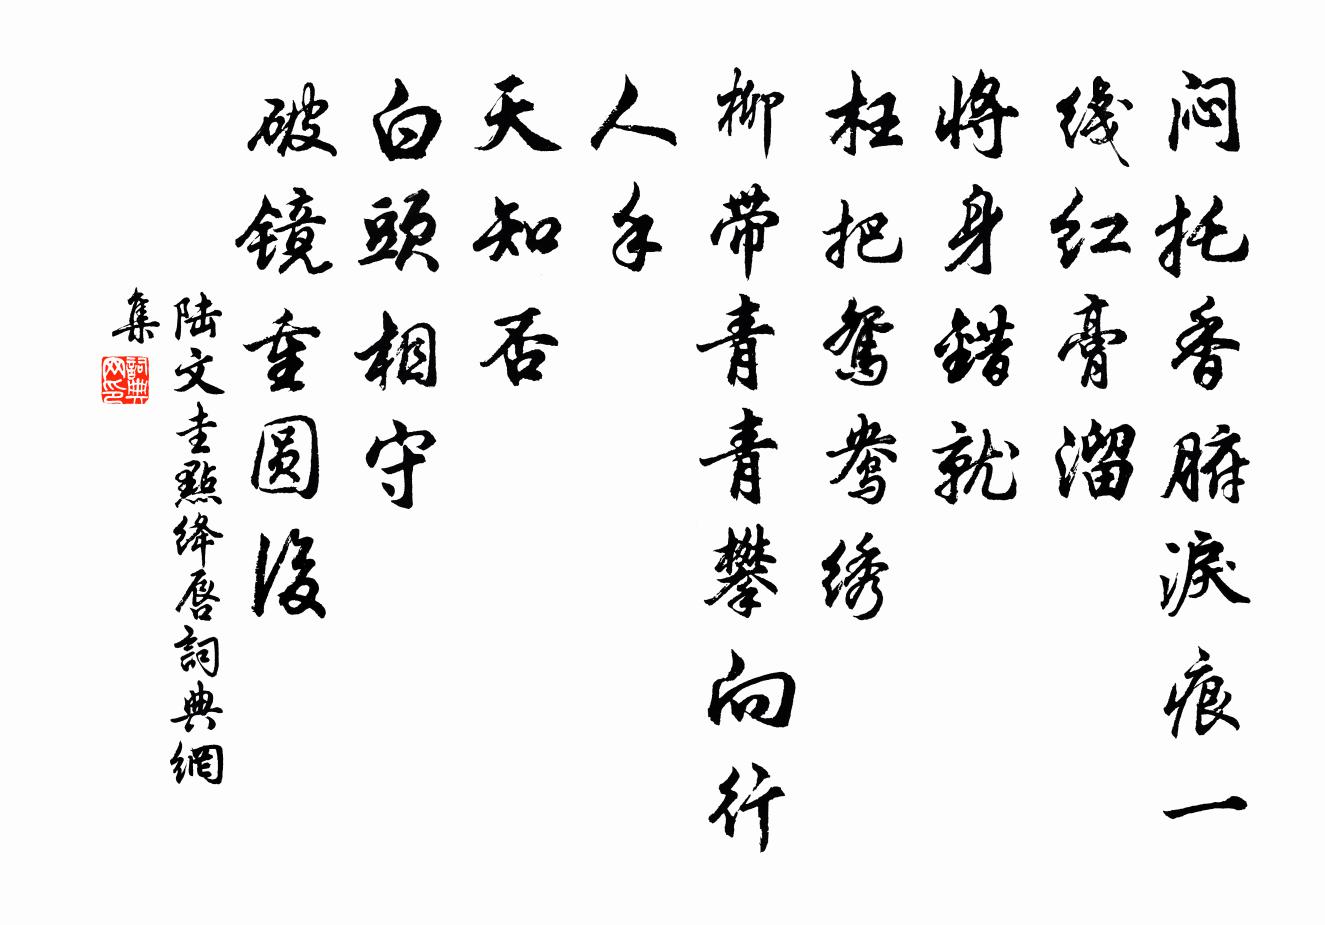 闷托香腑淚痕一
线红膏溜
將身錯就
枉把鸳鸯绣
柳带青青攀向行
人手
天知否
白頭相守
破镜重圆後
陆文圭點绛唇詞典網
集
詞典网印